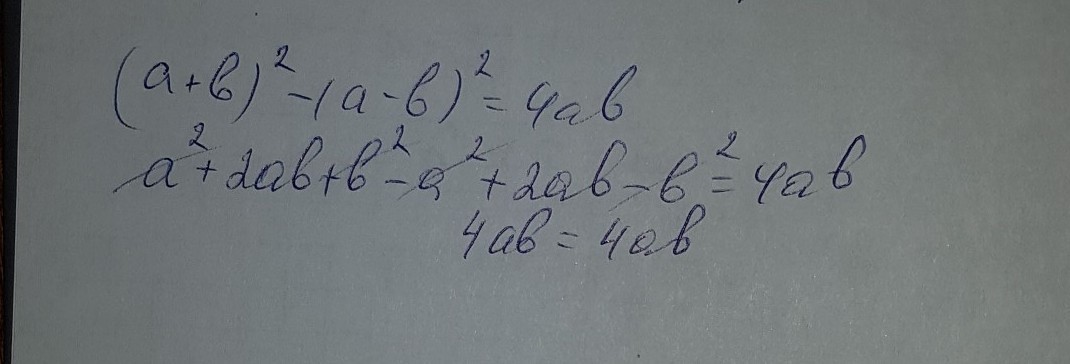 (a+b)²-(a-b)²=4ab
a²+2ab+b²-a²+2ab-b²=4ab
4ab=4ab